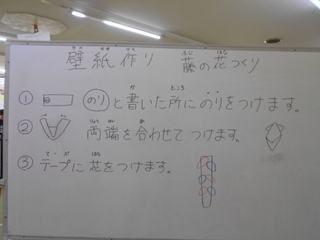 壁紙作り 藤の花つくり
① のりと書いた所にのりをつけます。
② 両端を合わせてつけます。
③ テープに花をつけます。